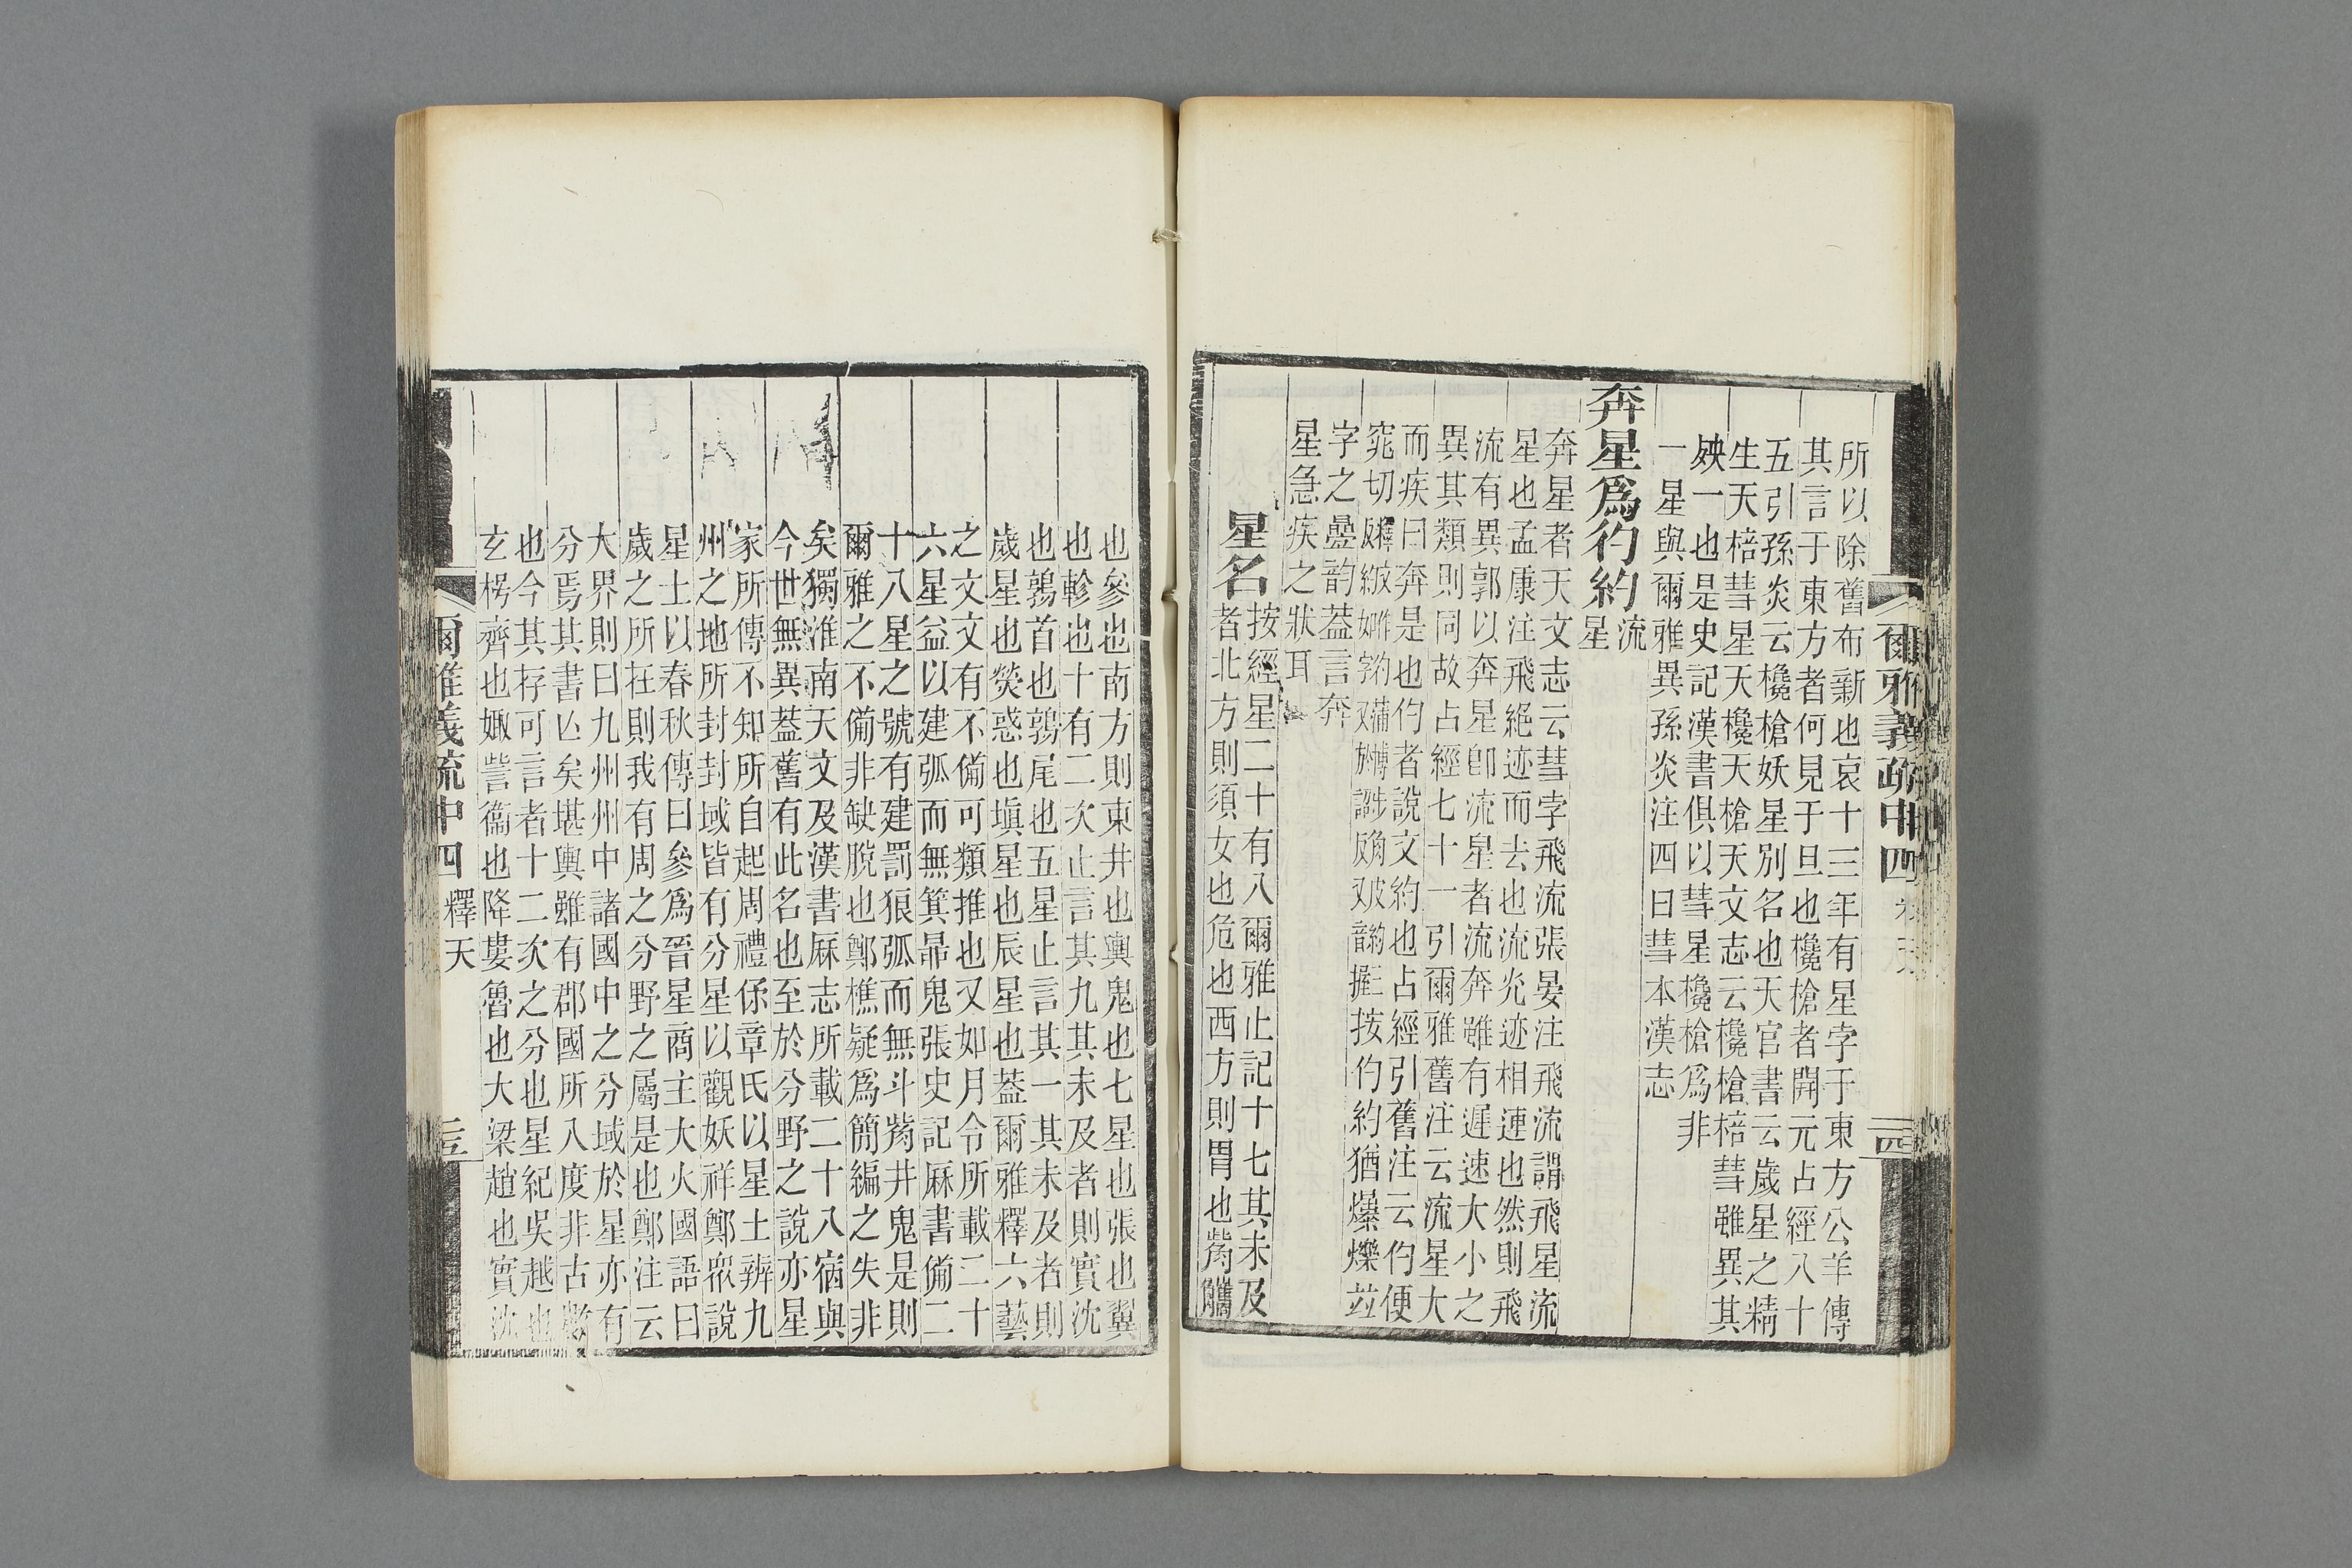 爾雅義疏中四
二四
所以除舊布新也哀十三年有星孛于東方公羊傳
其言于東方者何見于旦也欃槍者開元占經八十
五引孫炎云欃槍妖星別名也天官書云歲星之精
生天棓彗星天欃天槍天文志云欃槍棓彗雖異其
殃一也是史記漢書俱以彗星欃槍爲非
一星與爾雅異孫炎注四曰彗本漢志
奔星爲彴約
流
星
奔星者天文志云彗孛飛流張晏注飛流謂飛星流
星也孟康注飛絕迹而去也流光迹相連也然則飛
流有異郭以奔星卽流星者流奔雖有遲速大小之
異其類則同故占經七十一引爾雅舊注云流星大
而疾曰奔是也彴者說文約也占經引舊注云彴便
窕切 按彴約猶爆爍竝
字之疊韵蓋言奔
星急疾之狀耳
星名
按經星二十有八爾雅止記十七其未及
者北方則須女也危也西方則胃也觜觿
也參也南方則東井也輿鬼也七星也張也翼
也軫也十有二次止言其九其未及者則實沈
也鶉首也鶉尾也五星止言其一其未及者則
歲星也熒惑也塡星也辰星也蓋爾雅釋六藝
之文文有不備可類推也又如月令所載二十
六星益以建弧而無箕昴鬼張史記厤書備二
十八星之號有建罰狼弧而無斗觜井鬼是則
爾雅之不備非缺脫也鄭樵疑爲簡編之失非
矣獨淮南天文及漢書厤志所載二十八宿與
今世無異蓋舊有此名也至於分野之說亦星
家所傳不知所自起周禮保章氏以星土辨九
州之地所封封域皆有分星以觀妖祥鄭眾說
星土以春秋傳曰參爲晉星商主大火國語曰
歲之所在則我有周之分野之屬是也鄭注云
大界則曰九州州中諸國中之分域於星亦有
分焉其書亡矣堪輿雖有郡國所入度非古數
也今其存可言者十二次之分也星紀吳越也
玄枵齊也娵訾衞也降婁魯也大梁趙也實沈
爾雅義疏中四
釋天